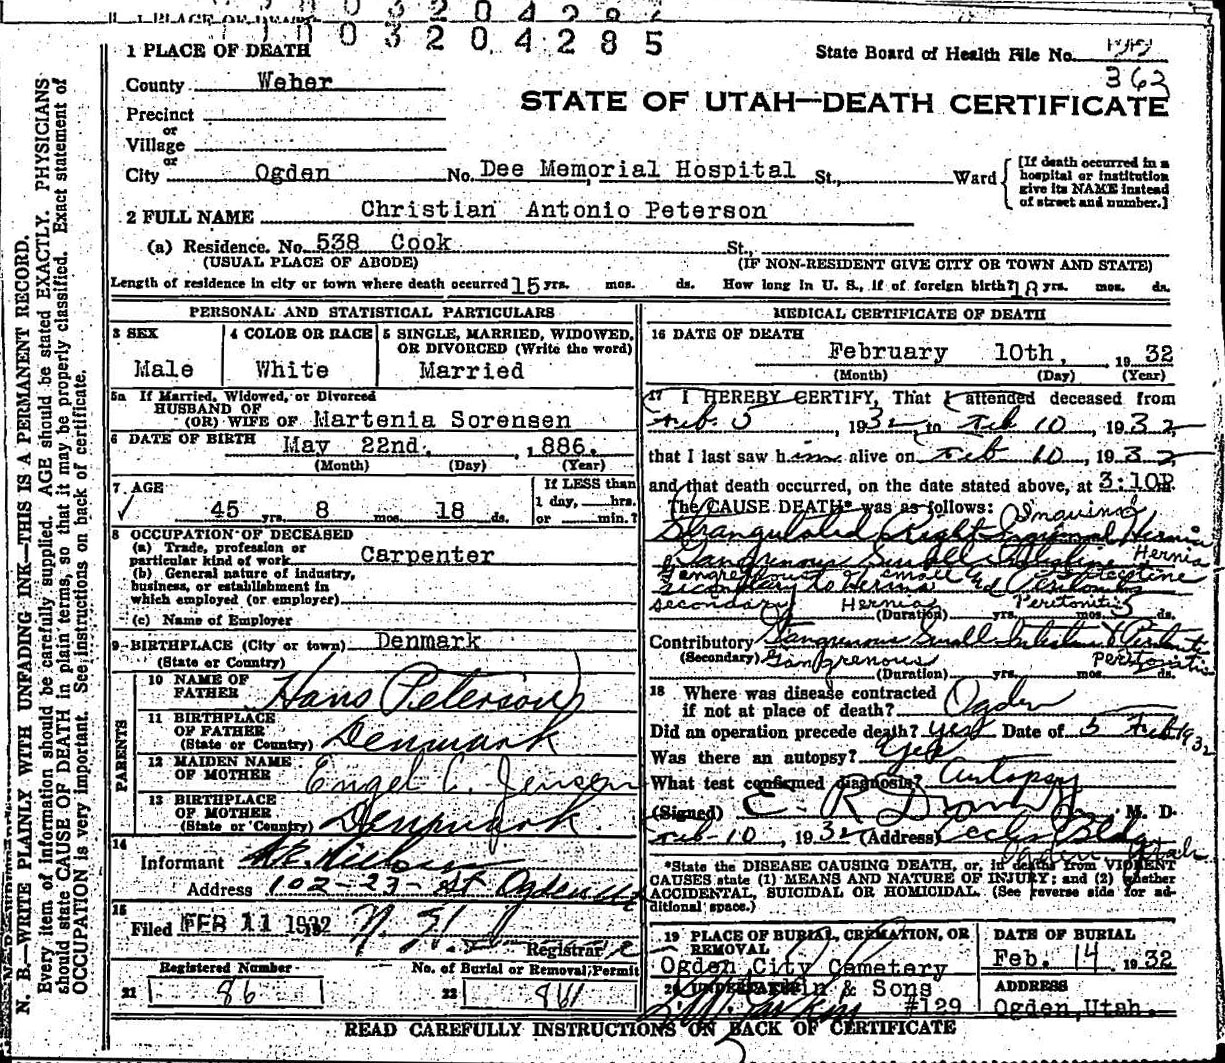 1 PLACE OF DEATH
1003204285
State Board of Health File No.
363
County Weber
STATE OF UTAH—DEATH CERTIFICATE
Precinct
or
Village
or
City Ogden No. Dee Memorial Hospital St., Ward
[If death occurred in a hospital or institution give its NAME instead of street and number.]
2 FULL NAME Christian Antonio Peterson
(a) Residence. No. 538 Cook St.,
(USUAL PLACE OF ABODE) (IF NON-RESIDENT GIVE CITY OR TOWN AND STATE)
Length of residence in city or town where death occurred 15 yrs. mos. ds. How long in U. S., if of foreign birth? 18 yrs. mos. ds.
PERSONAL AND STATISTICAL PARTICULARS
3 SEX
Male
4 COLOR OR RACE
White
5 SINGLE, MARRIED, WIDOWED,
OR DIVORCED (Write the word)
Married
5a If Married, Widowed, or Divorced
HUSBAND OF
(OR) WIFE OF Martenia Sorensen
6 DATE OF BIRTH May 22nd. , 1886.
(Month) (Day) (Year)
7 AGE
45 yrs. 8 mos. 18 ds.
If LESS than
1 day, hrs.
or min.?
8 OCCUPATION OF DECEASED
(a) Trade, profession or
particular kind of work Carpenter
(b) General nature of industry,
business, or establishment in
which employed (or employer)
(c) Name of Employer
9 BIRTHPLACE (City or town) Denmark
(State or Country)
PARENTS
10 NAME OF
FATHER Hans Peterson
11 BIRTHPLACE
OF FATHER
(State or Country) Denmark
12 MAIDEN NAME
OF MOTHER Engel C. Jensen
13 BIRTHPLACE
OF MOTHER
(State or Country) Denmark
14
Informant
Address 102-23-St Ogden Ut
15
Filed FEB 11 1932
Registrar
Registered Number
21 86
No. of Burial or Removal Permit
22 861
MEDICAL CERTIFICATE OF DEATH
16 DATE OF DEATH
February 10th, , 1932
(Month) (Day) (Year)
17 I HEREBY CERTIFY, That I attended deceased from
Feb. 5, 1932 to Feb 10, 1932,
that I last saw him alive on Feb 10, 1932,
and that death occurred, on the date stated above, at 3:10P m.
The CAUSE DEATH* was as follows: Inguinal
Strangulated Right Inguinal Hernia
Hernia
& Gangrenous Small Intestine
gangrenous small Intestine
secondary to Hernia and Peritonitis
secondary Hernia Peritonitis
(Duration) yrs. mos. 5 ds.
Contributory Gangrenous Small Intestine & Peritonitis
(Secondary) Gangrenous Peritonitis
(Duration) yrs. mos. ds.
18 Where was disease contracted
if not at place of death? Ogden
Did an operation precede death? yes Date of 5 Feb 1932
Was there an autopsy? Yes
What test confirmed diagnosis? Autopsy
(Signed) M. D.
Feb 10, 1932 (Address) Eccles Bldg
Ogden Utah
*State the DISEASE CAUSING DEATH, or, in deaths from VIOLENT
CAUSES state (1) MEANS AND NATURE OF INJURY; and (2) whether
ACCIDENTAL, SUICIDAL OR HOMICIDAL. (See reverse side for additional space.)
19 PLACE OF BURIAL, CREMATION, OR
REMOVAL
Ogden City Cemetery
DATE OF BURIAL
Feb. 14 1932
20 UNDERTAKER Larkin & Sons
#129
ADDRESS
Ogden, Utah.
READ CAREFULLY INSTRUCTIONS ON BACK OF CERTIFICATE
N. B.—WRITE PLAINLY WITH UNFADING INK—THIS IS A PERMANENT RECORD.
Every item of information should be carefully supplied. AGE should be stated EXACTLY. PHYSICIANS
should state CAUSE OF DEATH in plain terms, so that it may be properly classified. Exact statement of
OCCUPATION is very important. See instructions on back of certificate.